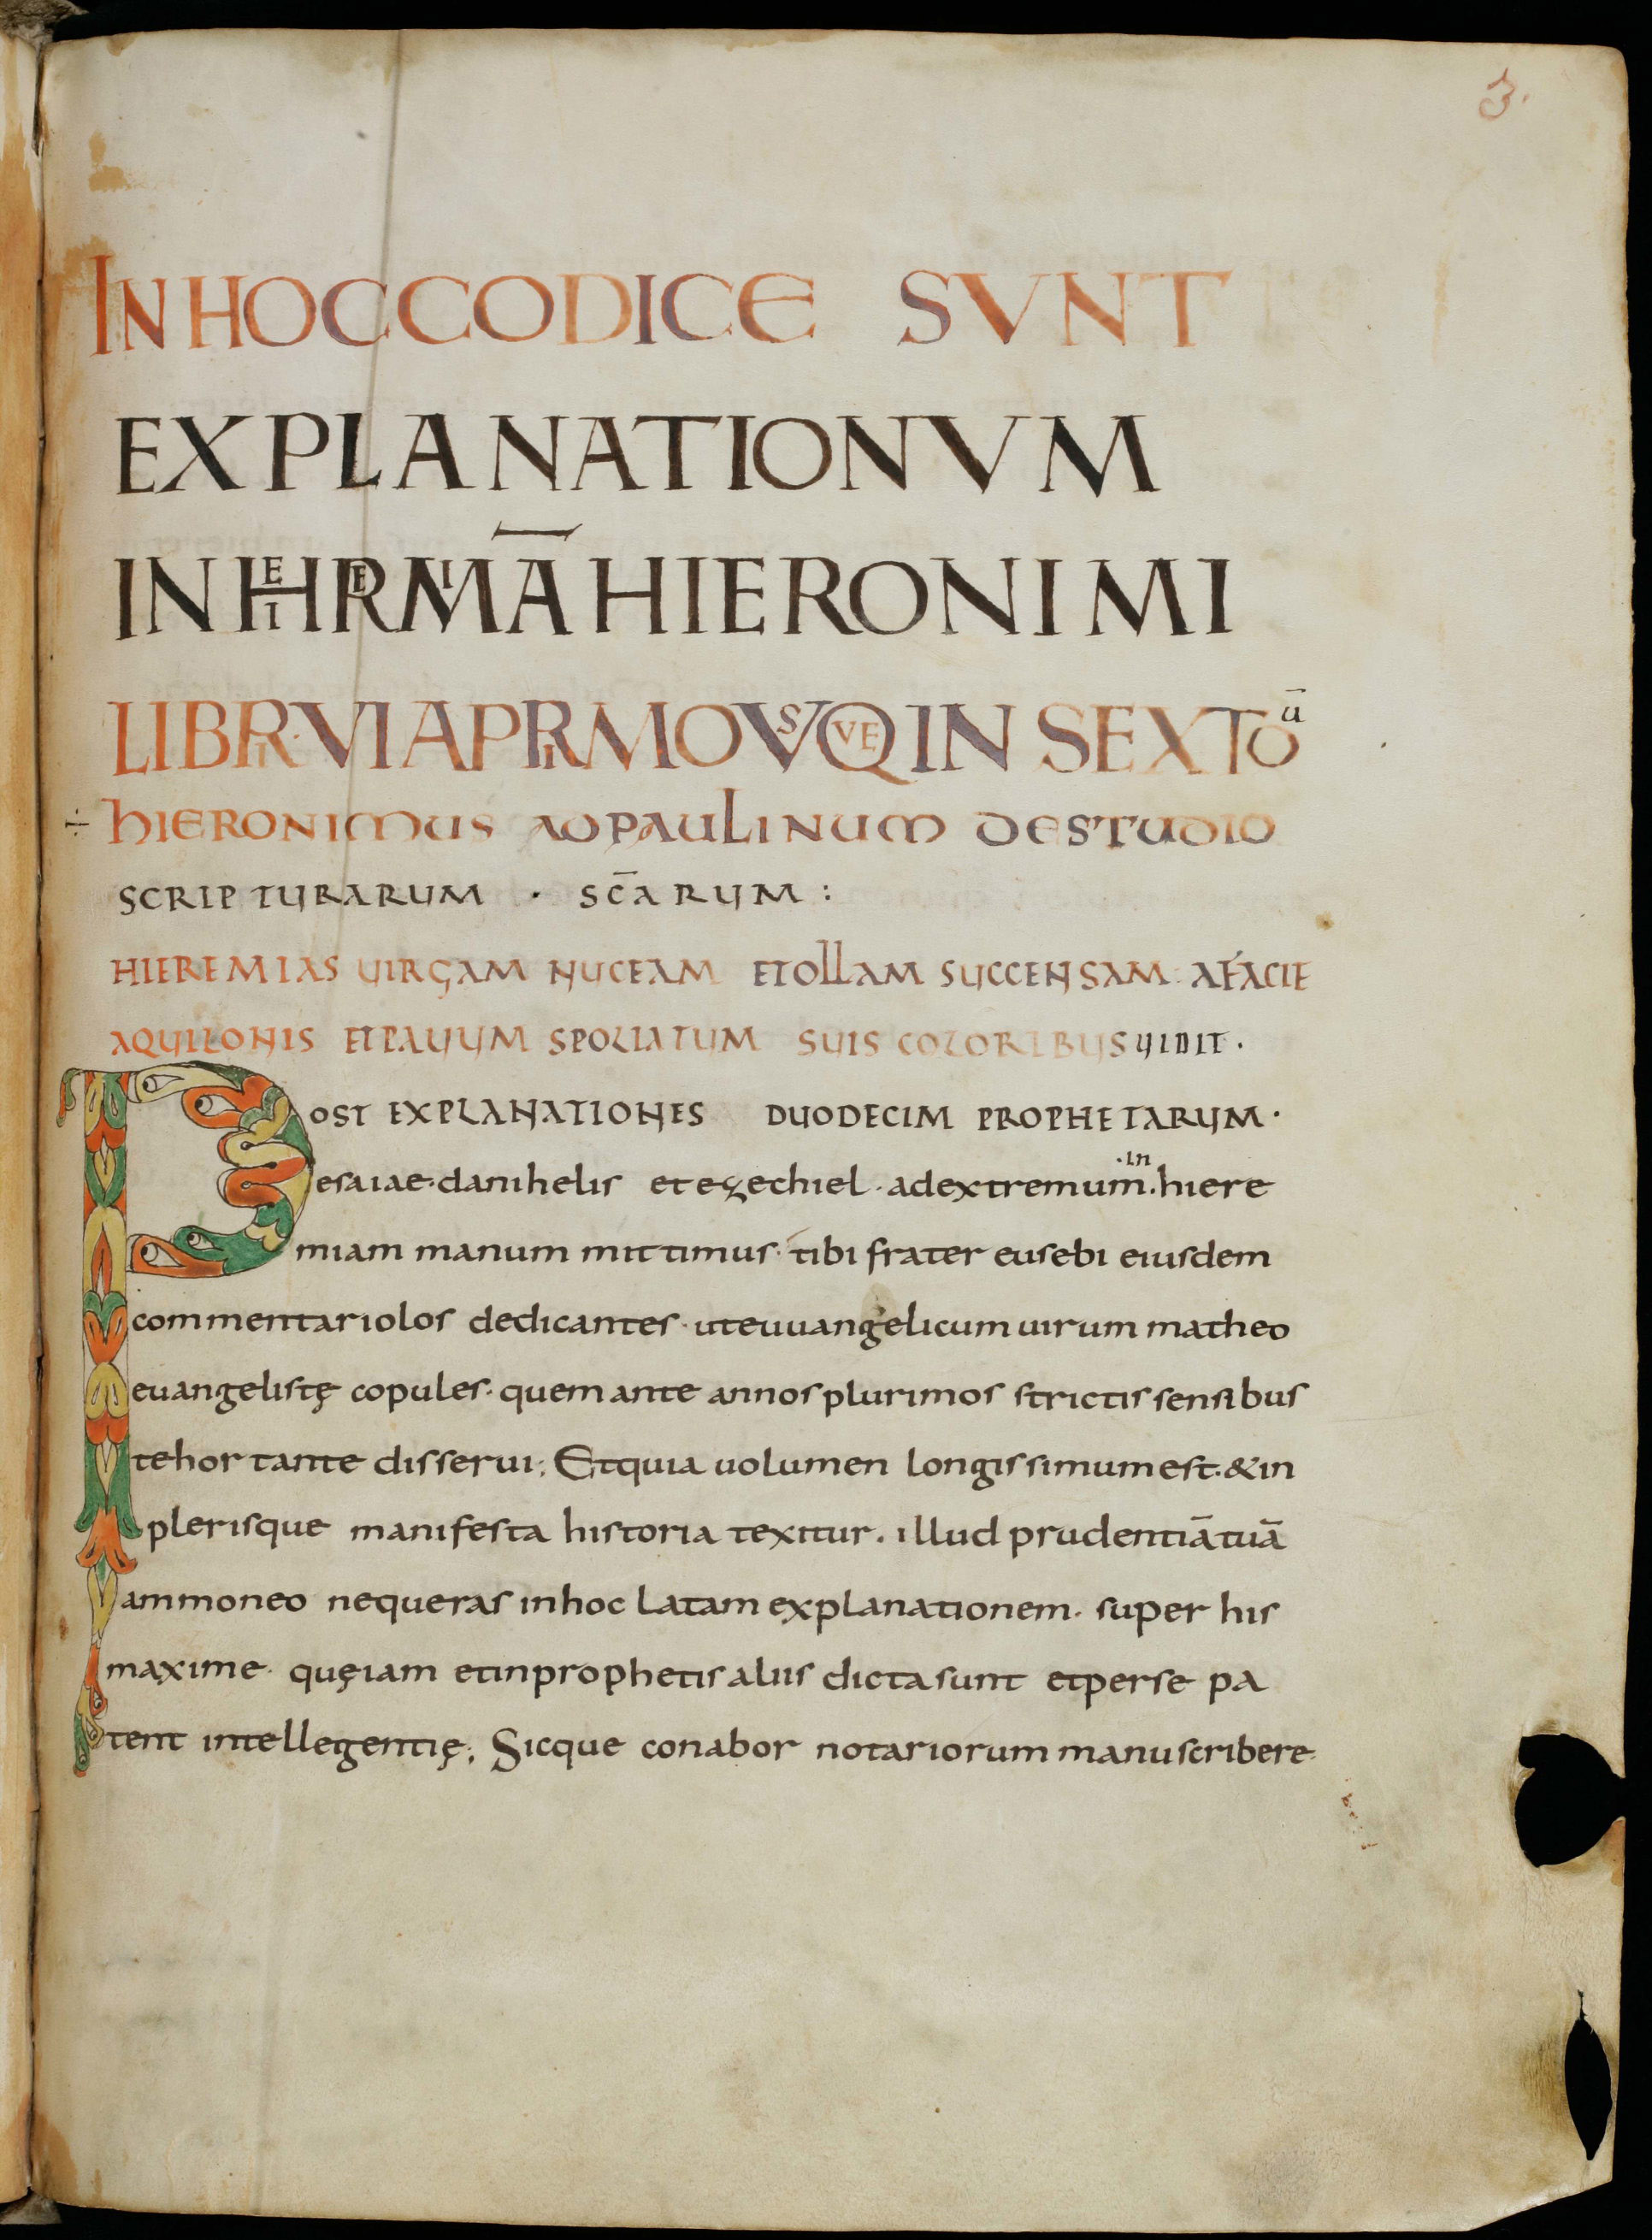 3.
IN HOC CODICE SVNT
EXPLANATIONVM
IN HIEREMIĀ HIERONIMI
LIBRI·VI A PRIMO VSQVE IN SEXTŪ
÷ HIERONIMUS AD PAULINUM DE STUDIO
SCRIPTURARUM · SC̄ARUM :
HIEREMIAS UIRGAM NUCEAM ET OLLAM SUCCENSAM · A FACIE
AQUILONIS ET PAUUM SPOLIATUM SUIS COLORIBUS UIDIT ·
POST EXPLANATIONES DUODECIM PROPHETARUM ·
esaiae · danihelis et ezechiel · ad extremum ·in· hiere
miam manum mittimus · tibi frater eusebi eiusdem
commentariolos dedicantes · ut euuangelicum uirum matheo
euangelistę copules · quem ante annos plurimos strictis sensibus
te hortante disserui ; Et quia uolumen longissimum est · & in
plerisque manifesta historia texitur . illud prudentiā tuā
ammoneo ne queras in hoc latam explanationem · super his
maxime · quę iam et in prophetis aliis dicta sunt et per se pa
tent intellegentię ; Sicque conabor notariorum manu scribere